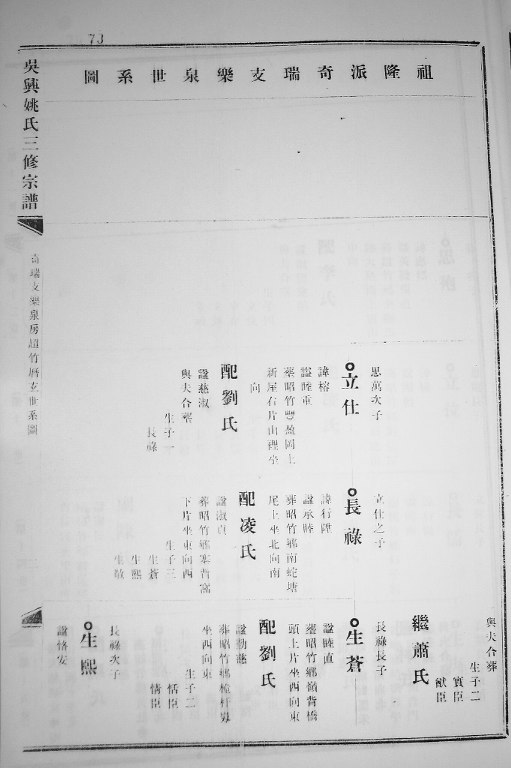 73
祖隆派奇瑞支樂泉世系圖
吳興姚氏三修宗譜
奇瑞支樂泉房
世系圖
思萬次子
立仕
諱榕
諡睦重
葬昭竹豐
岡上
新屋右片山裡坐
向
配劉氏
諡慈淑
與夫合葬
生子一
長祿
立仕之子
長祿
諱行陞
諡承睦
葬昭竹鄉南蛇塘
尾上坐北向南
配凌氏
諡淑貞
葬昭竹鄉寨背窩
下片坐東向西
生子三
生蒼
生熙
生敏
與夫合葬
生子二
賓臣
猷臣
繼蕭氏
長祿長子
生蒼
諡睦直
葬昭竹鄉嶺背橋
頭上片坐西向東
配劉氏
諡勤慈
葬昭竹鄉
坐西向東
生子二
恬臣
情臣
長祿次子
生熙
諡恪安